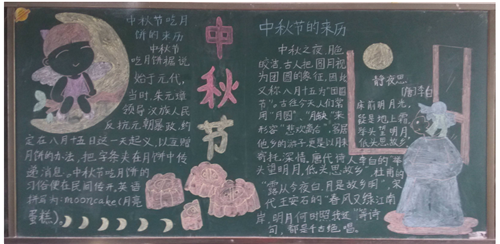 中秋节吃月
饼的来历
中秋节
吃月饼据说
始于元代,
当时,朱元璋
领导汉族人民
反抗元朝暴政,约
定在八月十五这一天起义,以互赠
月饼的办法,把字条夹在月饼中传
递消息。中秋节吃月饼的
习俗便在民间传开,英语
拼写为:mooncake(月亮
蛋糕)。
中秋节
中秋节的来历
中秋之夜,月色
皎洁,古人把圆月视
为团圆的象征,因此,
又称八月十五为“团圆
节”。古往今来,人们常用
“月圆”、“月缺”来
形容“悲欢离合”,客居
他乡的游子,更是以月来
寄托深情。唐代诗人李白的“举
头望明月,低头思故乡”,杜甫的
“露从今夜白,月是故乡明”,宋
代王安石的“春风又绿江南
岸,明月何时照我还”等诗
句,都是千古绝唱。
静夜思
(唐)李白
床前明月光,
疑是地上霜。
举头望明月,
低头思故乡。